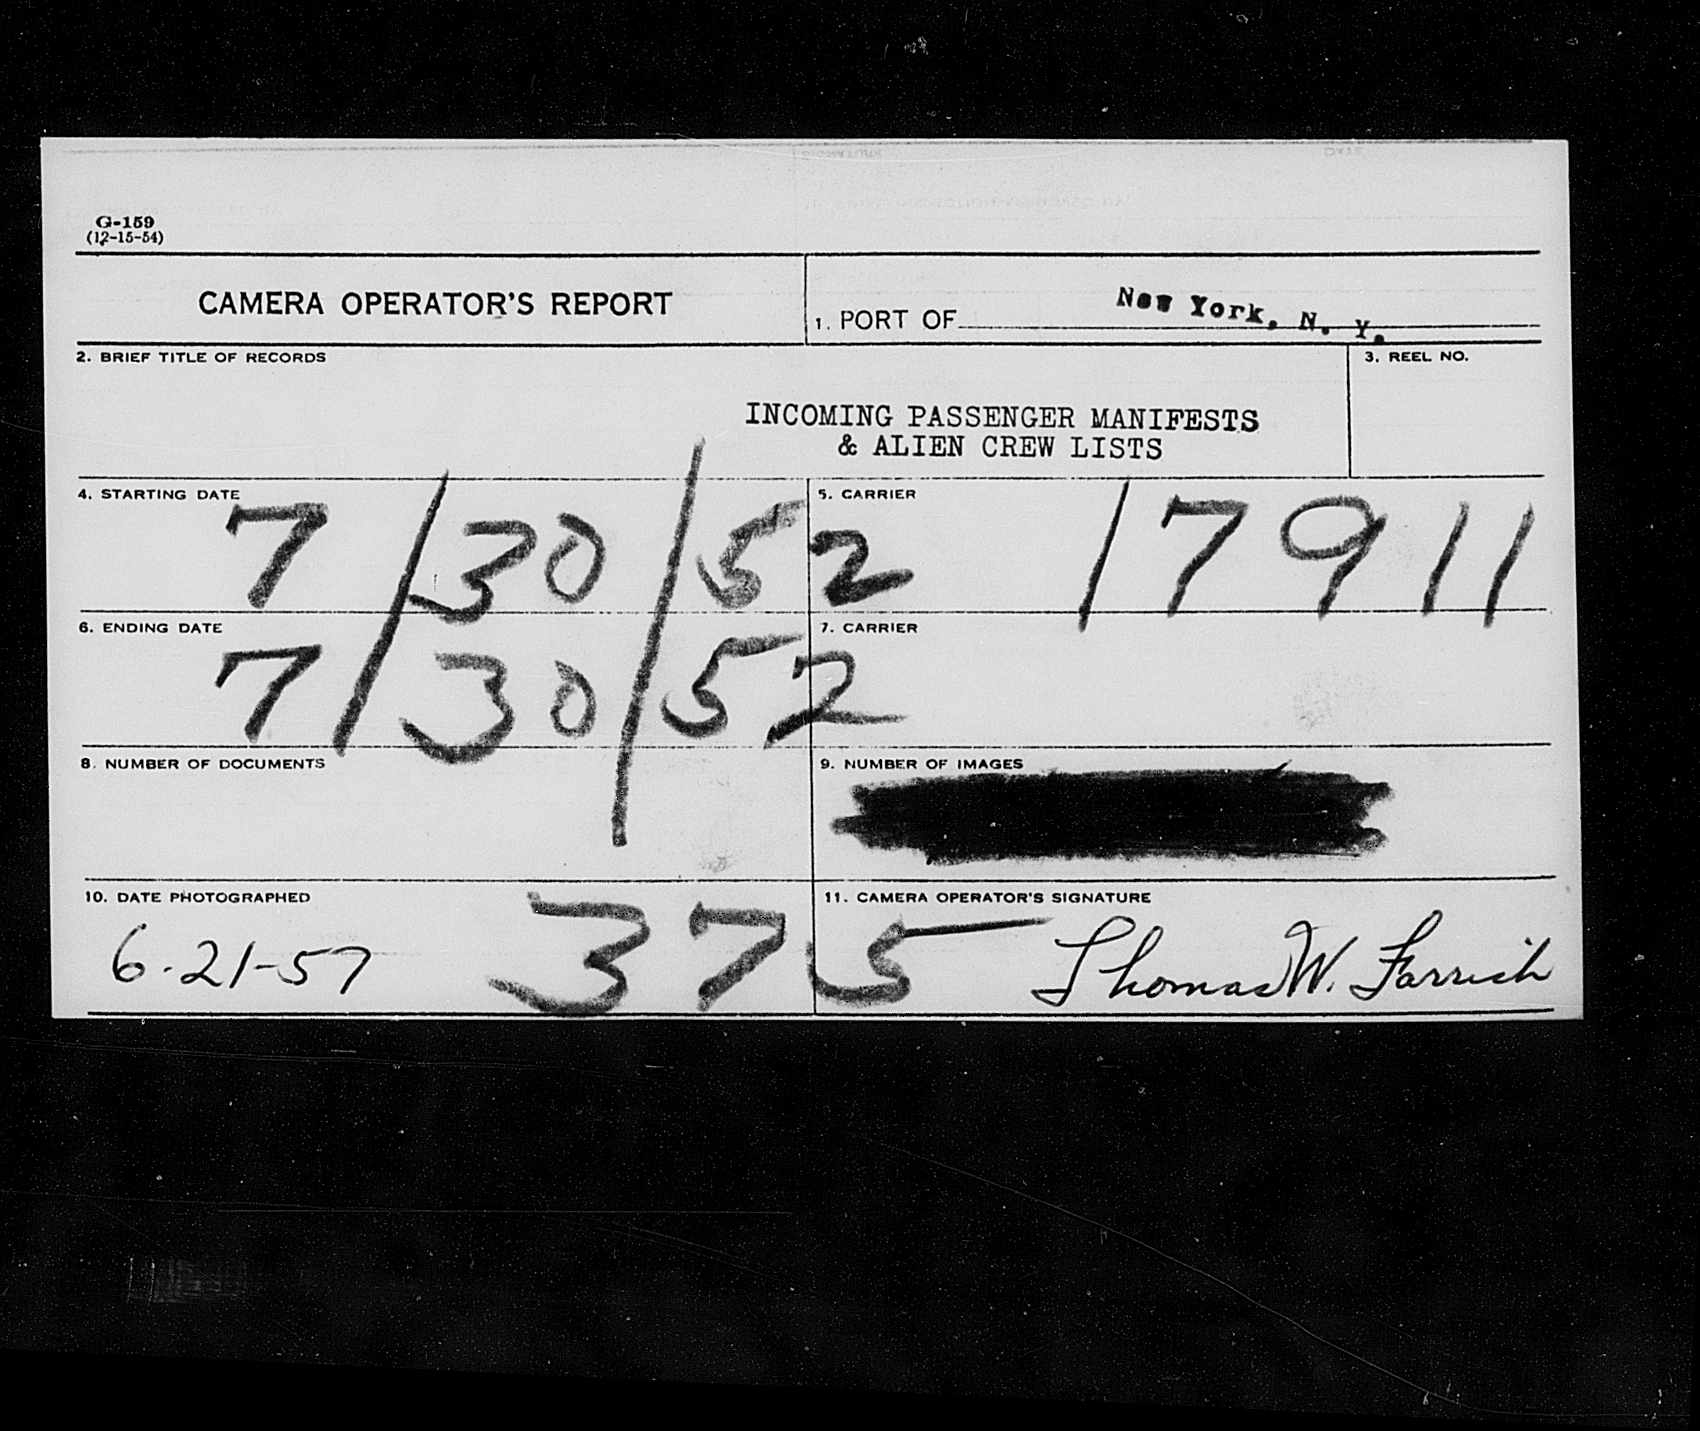 G-159
(12-15-54)
CAMERA OPERATOR'S REPORT
1. PORT OF New York, N. Y.
2. BRIEF TITLE OF RECORDS
3. REEL NO.
INCOMING PASSENGER MANIFESTS
& ALIEN CREW LISTS
4. STARTING DATE
7/30/52
5. CARRIER
17911
6. ENDING DATE
7/30/52
7. CARRIER
8. NUMBER OF DOCUMENTS
9. NUMBER OF IMAGES
10. DATE PHOTOGRAPHED
6-21-57
375
11. CAMERA OPERATOR'S SIGNATURE
Thomas W. Farrish